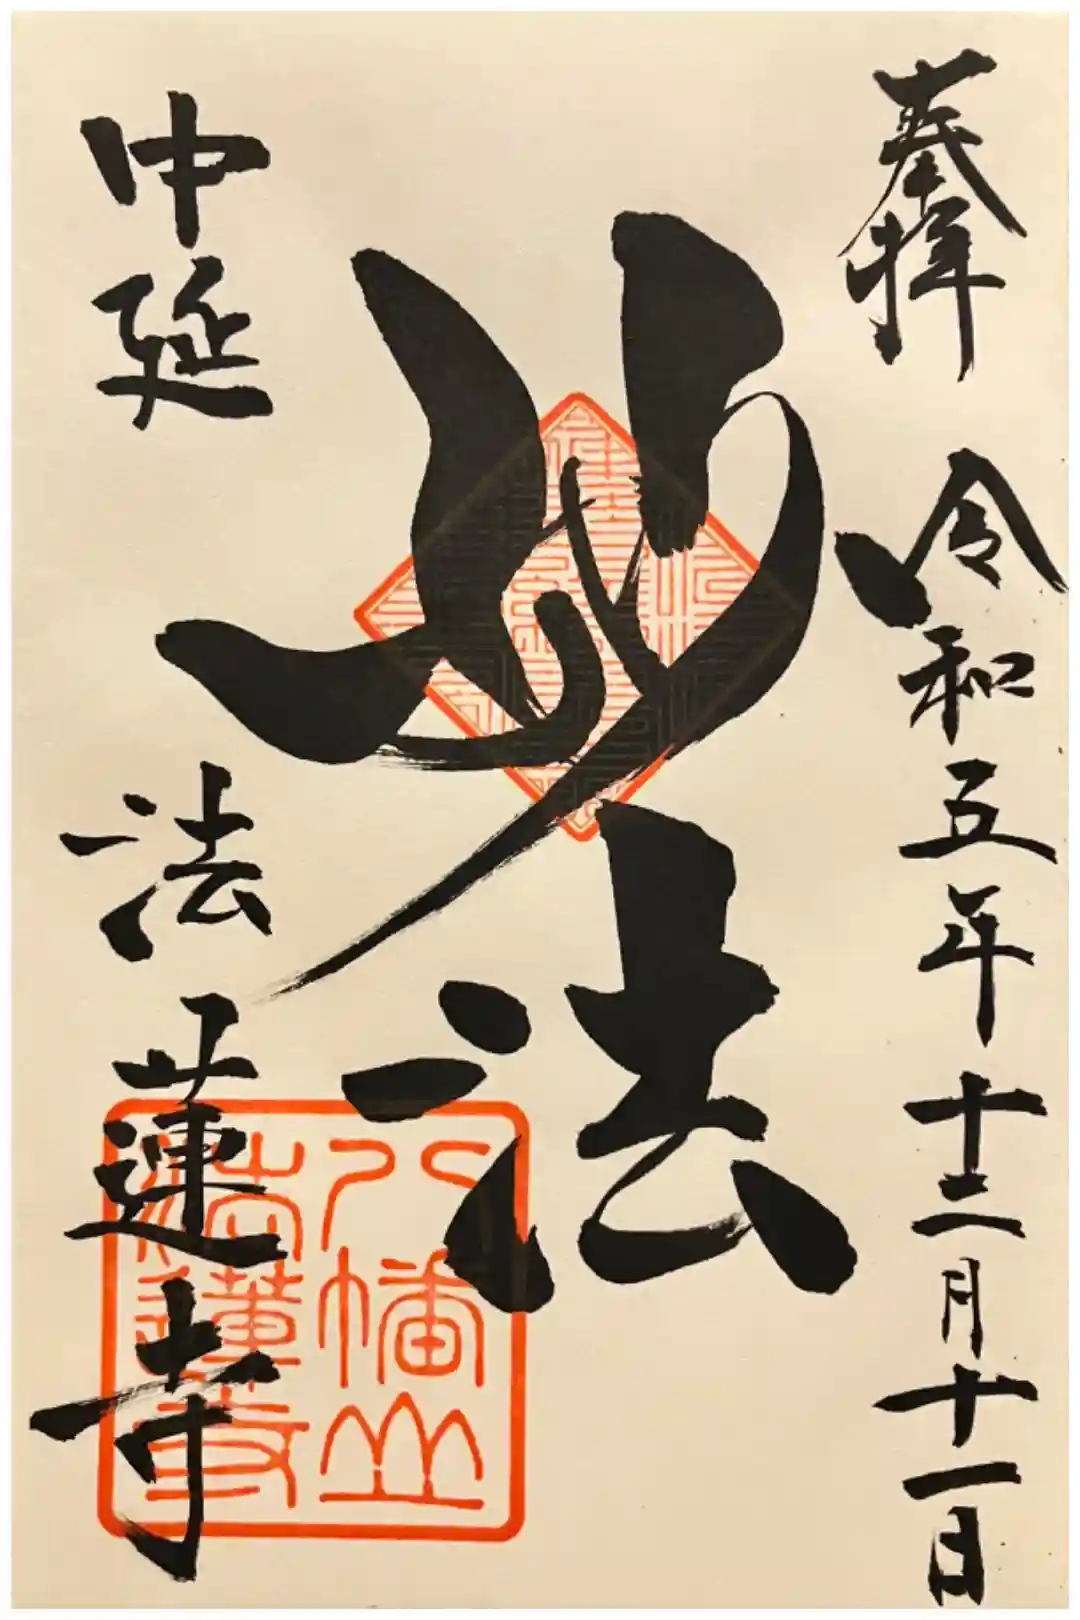 奉拝　令和五年十二月十一日
妙法
中延　法蓮寺
八幡山
法蓮寺